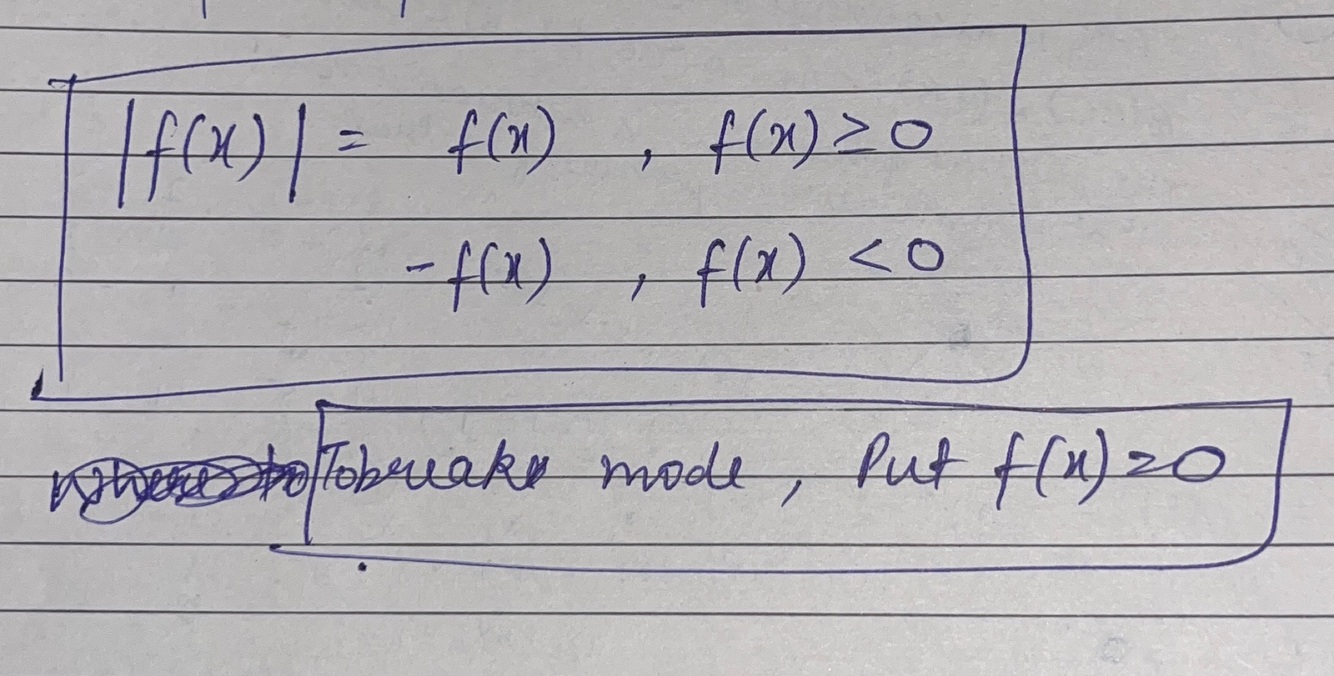 |f(x)| = f(x) , f(x) ≥ 0
-f(x) , f(x) < 0
To break mode, Put f(x) = 0